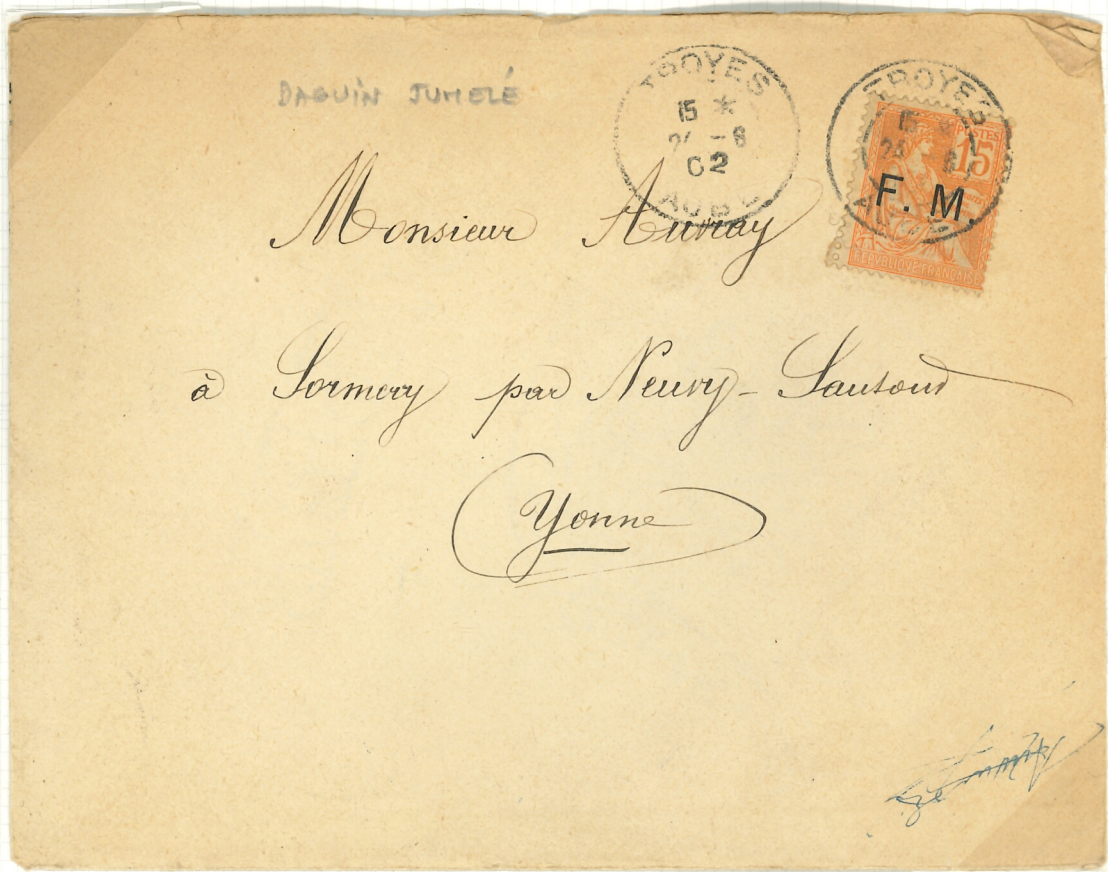 DAGUIN JUMELÉ
TROYES
15 *
24 -6
02
AUBE
TROYES
15
24 6
POSTES
15
F. M
REPUBLIQUE FRANÇAISE
Monsieur Auvray
à Sormery par Neuvy-Sautour
Yonne